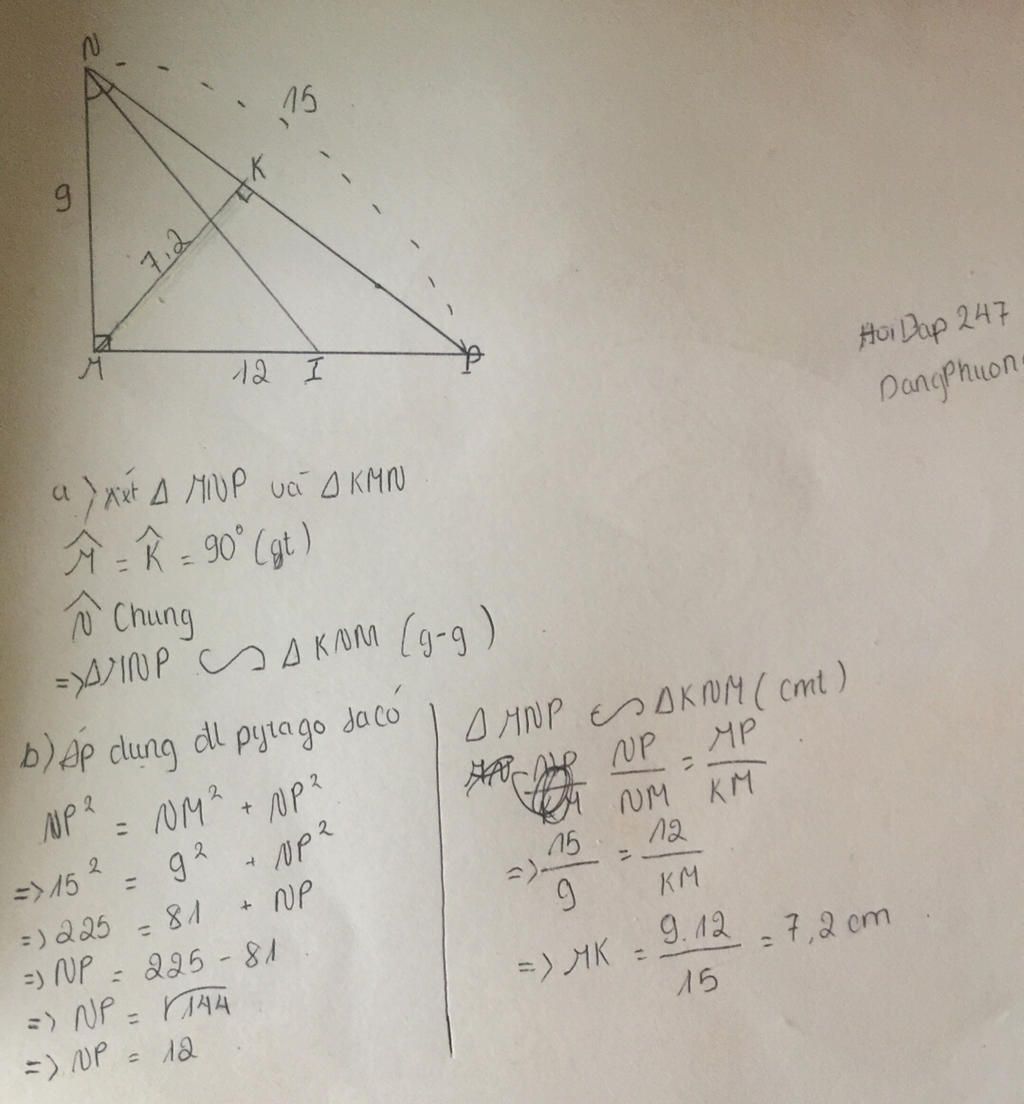 N
15
K
9
7,2
M
12
I
P
HoiDap 247
DangPhuon
a) xét Δ MNP và Δ KMN
M̂ = K̂ = 90° (gt)
N̂ Chung
=> Δ MNP ∽ Δ KNM (g-g)
b) Áp dụng đl pytago ta có
NP² = NM² + NP²
=> 15² = 9² + NP²
=> 225 = 81 + NP
=> NP = 225 - 81
=> NP = √144
=> NP = 12
Δ MNP ∽ Δ KNM (cmt)
NP/NM = MP/KM
=> 15/9 = 12/KM
=> MK = 9.12/15 = 7,2 cm